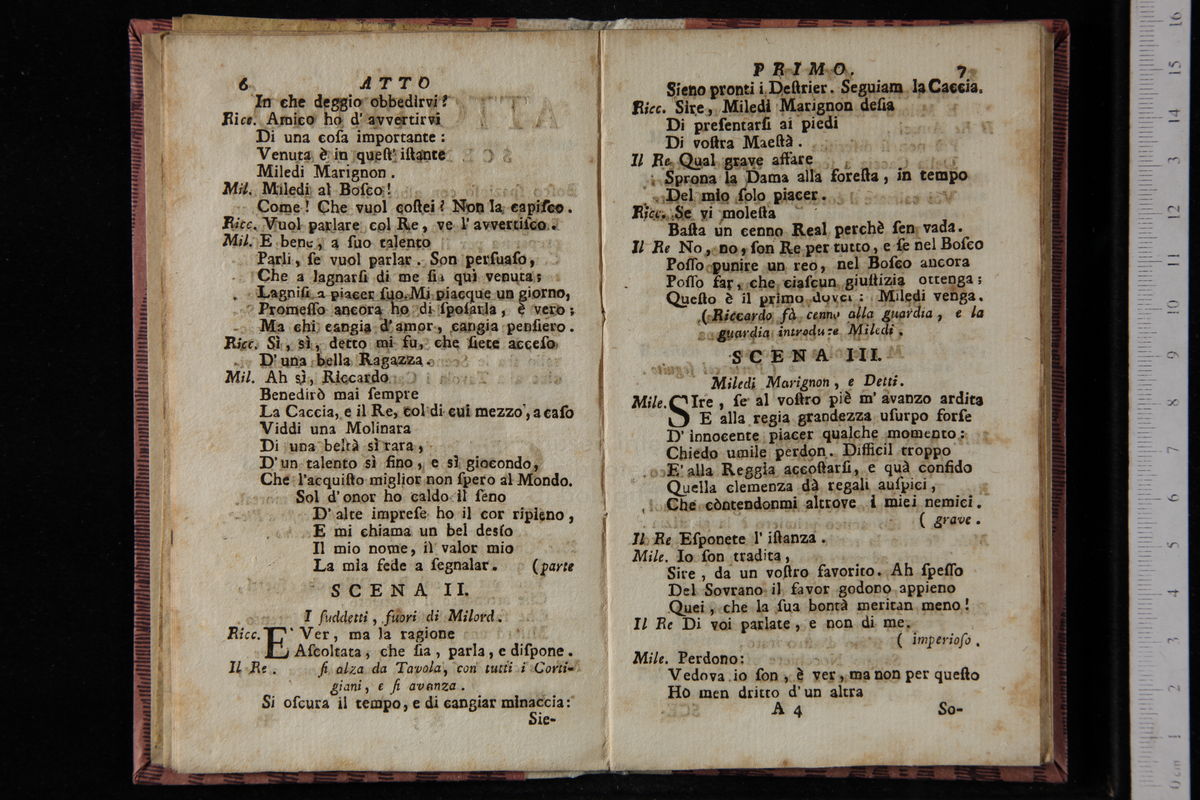 6 ATTO
In che deggio obbedirvi?
Ricc. Amico ho d' avvertirvi
Di una coſa importante:
Venuta è in queſt' iſtante
Miledi Marignon.
Mil. Miledi al Boſco!
Come! Che vuol coſtei? Non la capiſco.
Ricc. Vuol parlare col Re, ve l'avvertiſco.
Mil. E bene, a ſuo talento
Parli, ſe vuol parlar. Son perſuaſo,
Che a lagnarſi di me ſia quì venuta;
Lagniſi a piacer ſuo. Mi piacque un giorno,
Promeſſo ancora ho di ſpoſarla, è vero;
Ma chi cangia d'amor, cangia penſiero.
Ricc. Sì, sì, detto mi fu, che ſiete acceſo
D'una bella Ragazza.
Mil. Ah sì, Riccardo
Benedirò mai ſempre
La Caccia, e il Re, col di cui mezzo, a caſo
Viddi una Molinara
Di una beltà sì rara,
D'un talento sì fino, e sì giocondo,
Che l'acquiſto miglior non ſpero al Mondo.
Sol d'onor ho caldo il ſeno
D'alte impreſe ho il cor ripieno,
E mi chiama un bel desìo
Il mio nome, il valor mio
La mia fede a ſegnalar. (parte
SCENA II.
I ſuddetti, fuori di Milord.
Ricc. E' Ver, ma la ragione
Aſcoltata, che ſia, parla, e diſpone.
Il Re. ſi alza da Tavola, con tutti i Corti-
giani, e ſi avanza.
Si oſcura il tempo, e di cangiar minaccia:
Sie-
PRIMO. 7
Sieno pronti i Deſtrier. Seguiam la Caccia.
Ricc. Sire, Miledi Marignon deſia
Di preſentarſi ai piedi
Di voſtra Maeſtà.
Il Re Qual grave affare
Sprona la Dama alla foreſta, in tempo
Del mio ſolo piacer.
Ricc. Se vi moleſta
Baſta un cenno Real perchè ſen vada.
Il Re No, no, ſon Re per tutto, e ſe nel Boſco
Poſſo punire un reo, nel Boſco ancora
Poſſo far, che ciaſcun giuſtizia ottenga;
Queſto è il primo dover: Miledi venga.
(Riccardo fà cenno alla guardia, e la
guardia introduce Miledi.
SCENA III.
Miledi Marignon, e Detti.
Mile. SIre, ſe al voſtro piè m' avanzo ardita
E alla regia grandezza uſurpo forſe
D' innocente piacer qualche momento:
Chiedo umile perdon. Difficil troppo
E' alla Reggia accoſtarſi, e quà confido
Quella clemenza dà regali auſpici,
Che còntendonmi altrove i miei nemici.
( grave.
Il Re Eſponete l' iſtanza.
Mile. Io ſon tradita,
Sire, da un voſtro favorito. Ah ſpeſſo
Del Sovrano il favor godono appieno
Quei, che la ſua bontà meritan meno!
Il Re Di voi parlate, e non di me.
( imperioſo.
Mile. Perdono:
Vedova io ſon, è ver, ma non per queſto
Hò men dritto d'un altra
A 4 So-